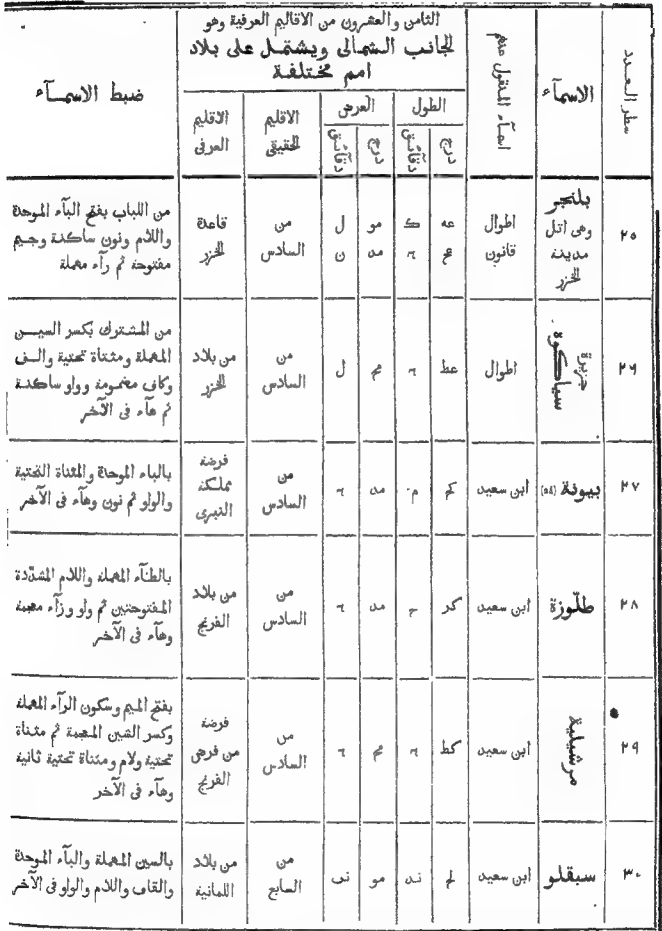 الثامن والعشرون من الاقاليم العرفية وهو
الجانب الشمالى ويشتمل على بلاد
امم مختلفة
سطر العدد
الاسمآء
اسمآء المنقول عنهم
الطول
درج
دقآئق
العرض
درج
دقآئق
الاقليم الحقيقى
الاقليم العرفى
ضبط الاسمــآء
٢٥
بلنجر
وهى اتل
مدينة
الخزر
اطوال
قانون
عه
ك
مو
ل
مد
ن
من
السادس
قاعدة
الخزر
من اللباب بفتح البآء الموحدة
واللام ونون ساكنة وجيم
مفتوحة ثم رآء مهملة
٢٦
جزيرة
سياكوة
اطوال
عط
ل
من
السادس
من بلاد
الخزر
من المشترك بكسر السيــن
المهملة ومثناة تحتية والــف
وكاف مضمومة وواو ساكنــة
ثم هآء فى الآخر
٢٧
بيونة
ابن سعيد
م
مد
من
السادس
فرضة
مملكة
النبرى
بالباء الموحدة والمثناة التحتية
والواو ثم نون وهآء فى الآخر
٢٨
طلّوزة
ابن سعيد
كر
مد
من
السادس
من بلاد
الفرنج
بالطآء المهملة واللام المشدّدة
المفتوحتين ثم واو وزآء معجمة
وهآء فى الآخر
٢٩
مرشيلية
ابن سعيد
كط
من
السادس
فرضة
من فرض
الفرنج
بفتح الميم وسكون الرآء المهملة
وكسر الشين المعجمة ثم مثناة
تحتية ولام ومثناة تحتية ثانية
وهآء فى الآخر
٣٠
سبقلو
ابن سعيد
ل‍م
ند
مو
نب
من
السابع
من بلاد
اللمانية
بالسين المهملة والبآء الموحدة
والقاف واللام والواو فى الآخر